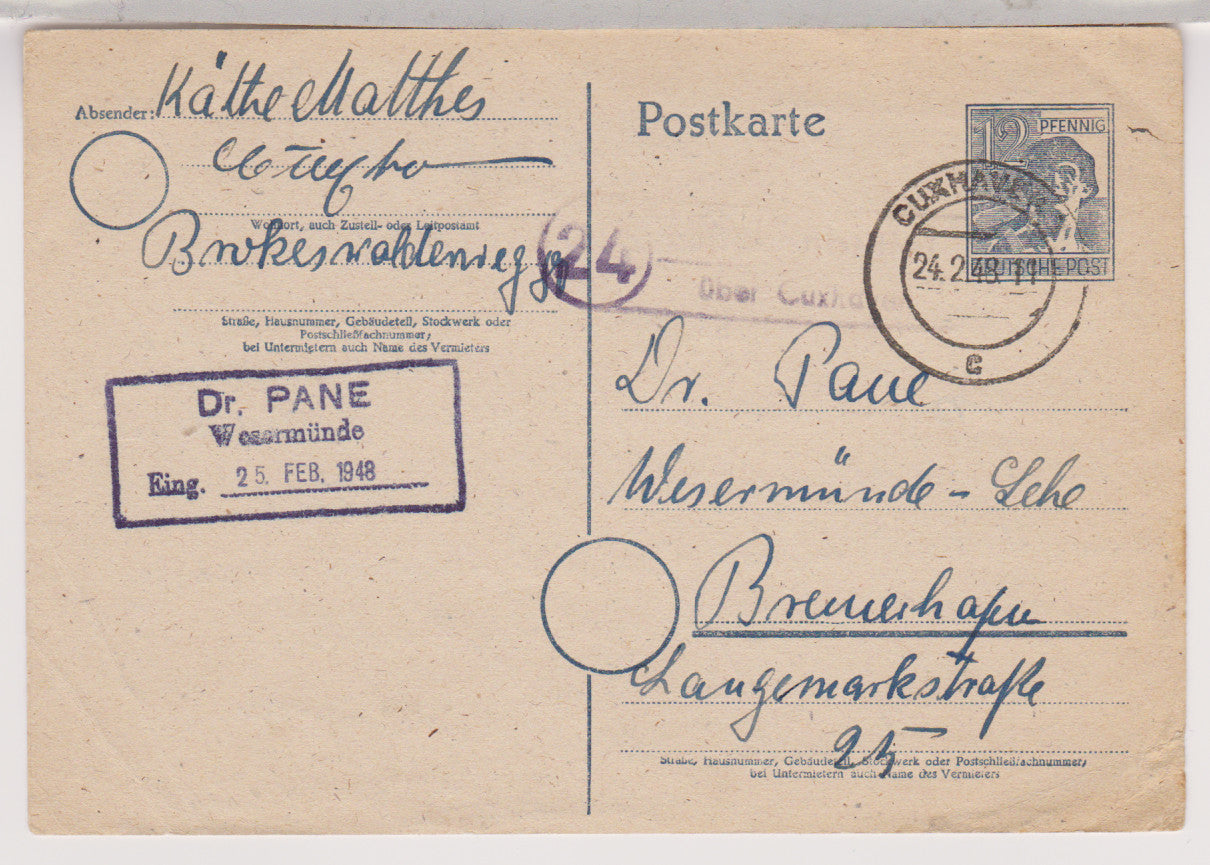 Absender: Käthe Matthes
Wohnort, auch Zustell- oder Leitpostamt
Brokeswaldenweg
Straße, Hausnummer, Gebäudeteil, Stockwerk oder
Postschließfachnummer;
bei Untermietern auch Name des Vermieters
Dr. PANE
Wesermünde
Eing. 25. FEB. 1948
Postkarte
12 PFENNIG
DEUTSCHE POST
CUXHAVEN
24.2.48.11
c
24
über Cuxhaven
Dr. Pane
Wesermünde - Lehe
Bremerhafen
Langemarkstraße
25
Straße, Hausnummer, Gebäudeteil, Stockwerk oder Postschließfachnummer;
bei Untermietern auch Name des Vermieters